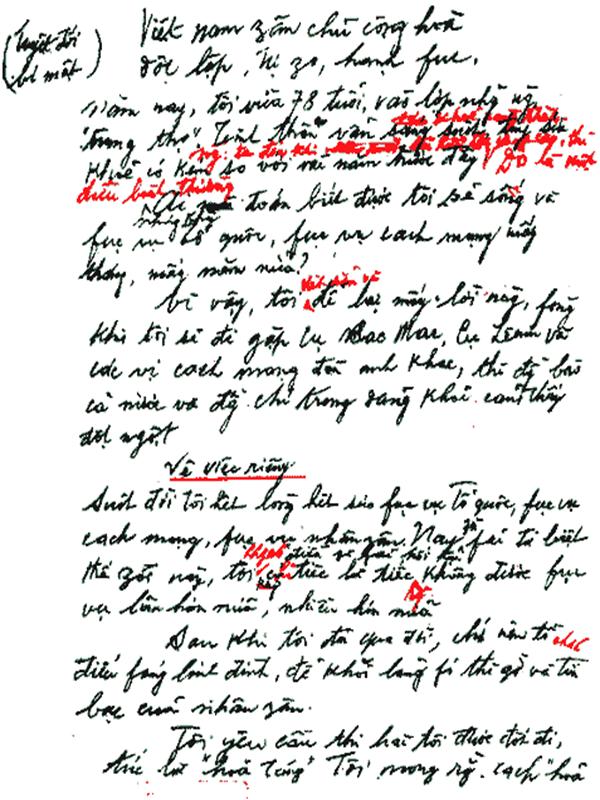 (Tuyệt đối
bí mật)
Việt nam zân chủ cộng hoà
độc lập, tự zo, hạnh fuc.
Năm nay, tôi vừa 78 tuổi, vào lớp những ng
"trung thọ". Tinh thần vẫn sáng suốt, tuy sức
khoẻ có kém so với vài năm trước đây. Đó là một
điều bình thường.
Ai mà đoán biết được tôi sẽ sống và
fục vụ tổ quốc, fục vụ cách mạng mấy
tháng, mấy năm nữa?
Vì vậy, tôi để lại mấy lời này, fòng
khi tôi sẽ đi gặp Cụ Các Mác, Cụ Lênin và
các vị cách mạng đàn anh khác, thì đồng bào
cả nước và đồng chí trong đảng khỏi cảm thấy
đột ngột.
Về việc riêng
Suốt đời tôi hết lòng hết sức fục vụ Tổ quốc, fục vụ
cách mạng, fục vụ nhân zân. Nay zù fải từ biệt
thế zới này, tôi không có điều gì fải hối hận,
chỉ tiếc là tiếc không được fục
vụ lâu hơn nữa, nhiều hơn nữa
Sau khi tôi đã qua đời, chớ nên tổ chức
điếu fúng linh đình, để khỏi lãng fí thì giờ và tiền
bạc của nhân zân.
Tôi yêu cầu thi hài tôi được đốt đi,
tức là "hoả táng". Tôi mong rằng cách "hoả